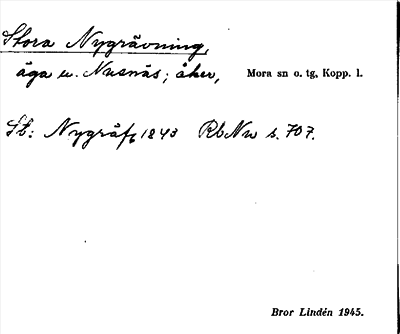 Stora Nygrävning,
äga u. Nusnäs; åker, Mora sn o. tg, Kopp. l.
St: Nygräfn 1843 RbNu s. 707.
Bror Lindén 1945.